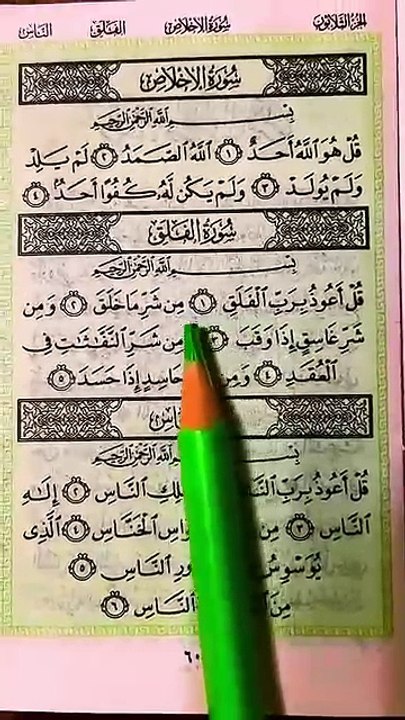 الجزء الثلاثون سورة الإخلاص الفلق الناس
سُورَةُ الإِخْلَاصِ
بِسْمِ ٱللَّهِ ٱلرَّحْمَٰنِ ٱلرَّحِيمِ
قُلْ هُوَ ٱللَّهُ أَحَدٌ ١ ٱللَّهُ ٱلصَّمَدُ ٢ لَمْ يَلِدْ
وَلَمْ يُولَدْ ٣ وَلَمْ يَكُن لَّهُۥ كُفُوًا أَحَدٌ ٤
سُورَةُ الفَلَقِ
بِسْمِ ٱللَّهِ ٱلرَّحْمَٰنِ ٱلرَّحِيمِ
قُلْ أَعُوذُ بِرَبِّ ٱلْفَلَقِ ١ مِن شَرِّ مَا خَلَقَ ٢ وَمِن
شَرِّ غَاسِقٍ إِذَا وَقَبَ ٣ مِن شَرِّ ٱلنَّفَّٰثَٰتِ فِى
ٱلْعُقَدِ ٤ وَمِن حَاسِدٍ إِذَا حَسَدَ ٥
بِسْمِ ٱللَّهِ ٱلرَّحْمَٰنِ ٱلرَّحِيمِ
قُلْ أَعُوذُ بِرَبِّ ٱلنَّاسِ ٱلنَّاسِ ٢ إِلَٰهِ
ٱلنَّاسِ ٣ مِن ٱلْخَنَّاسِ ٤ ٱلَّذِى
يُوَسْوِسُ ٱلنَّاسِ ٥
مِنَ ٱلنَّاسِ ٦